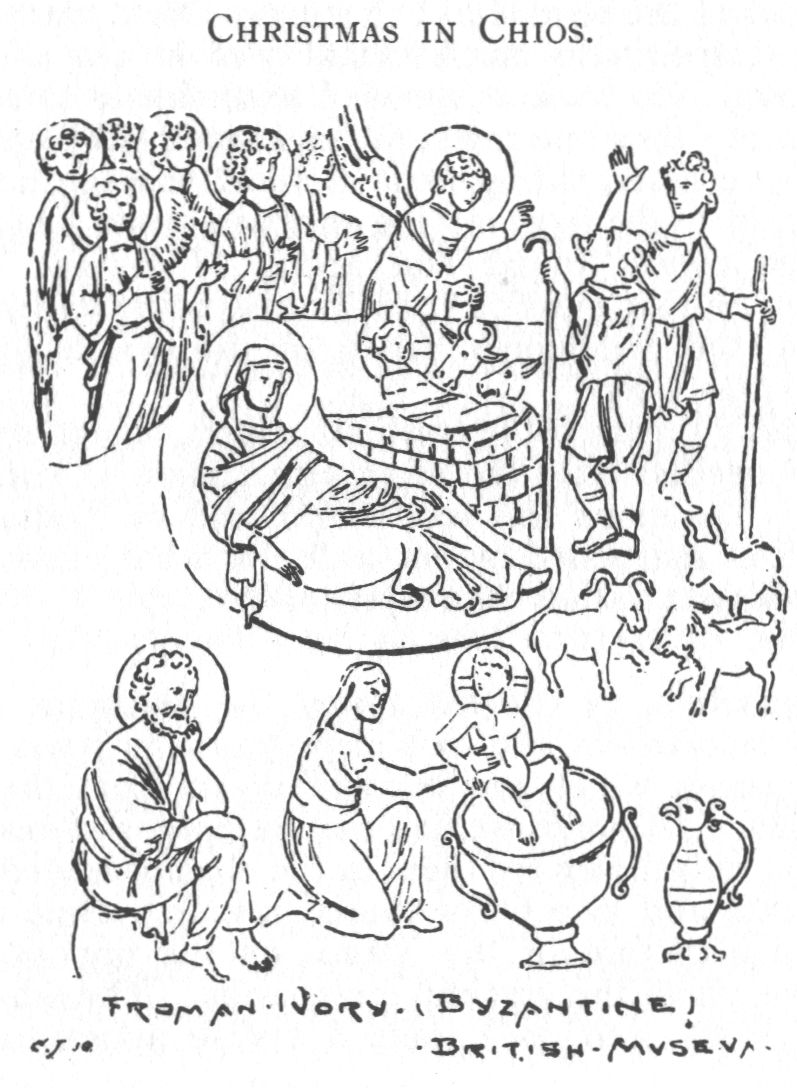 CHRISTMAS IN CHIOS.
FROM AN · IVORY · (BYZANTINE)
· BRITISH · MVSEVM ·